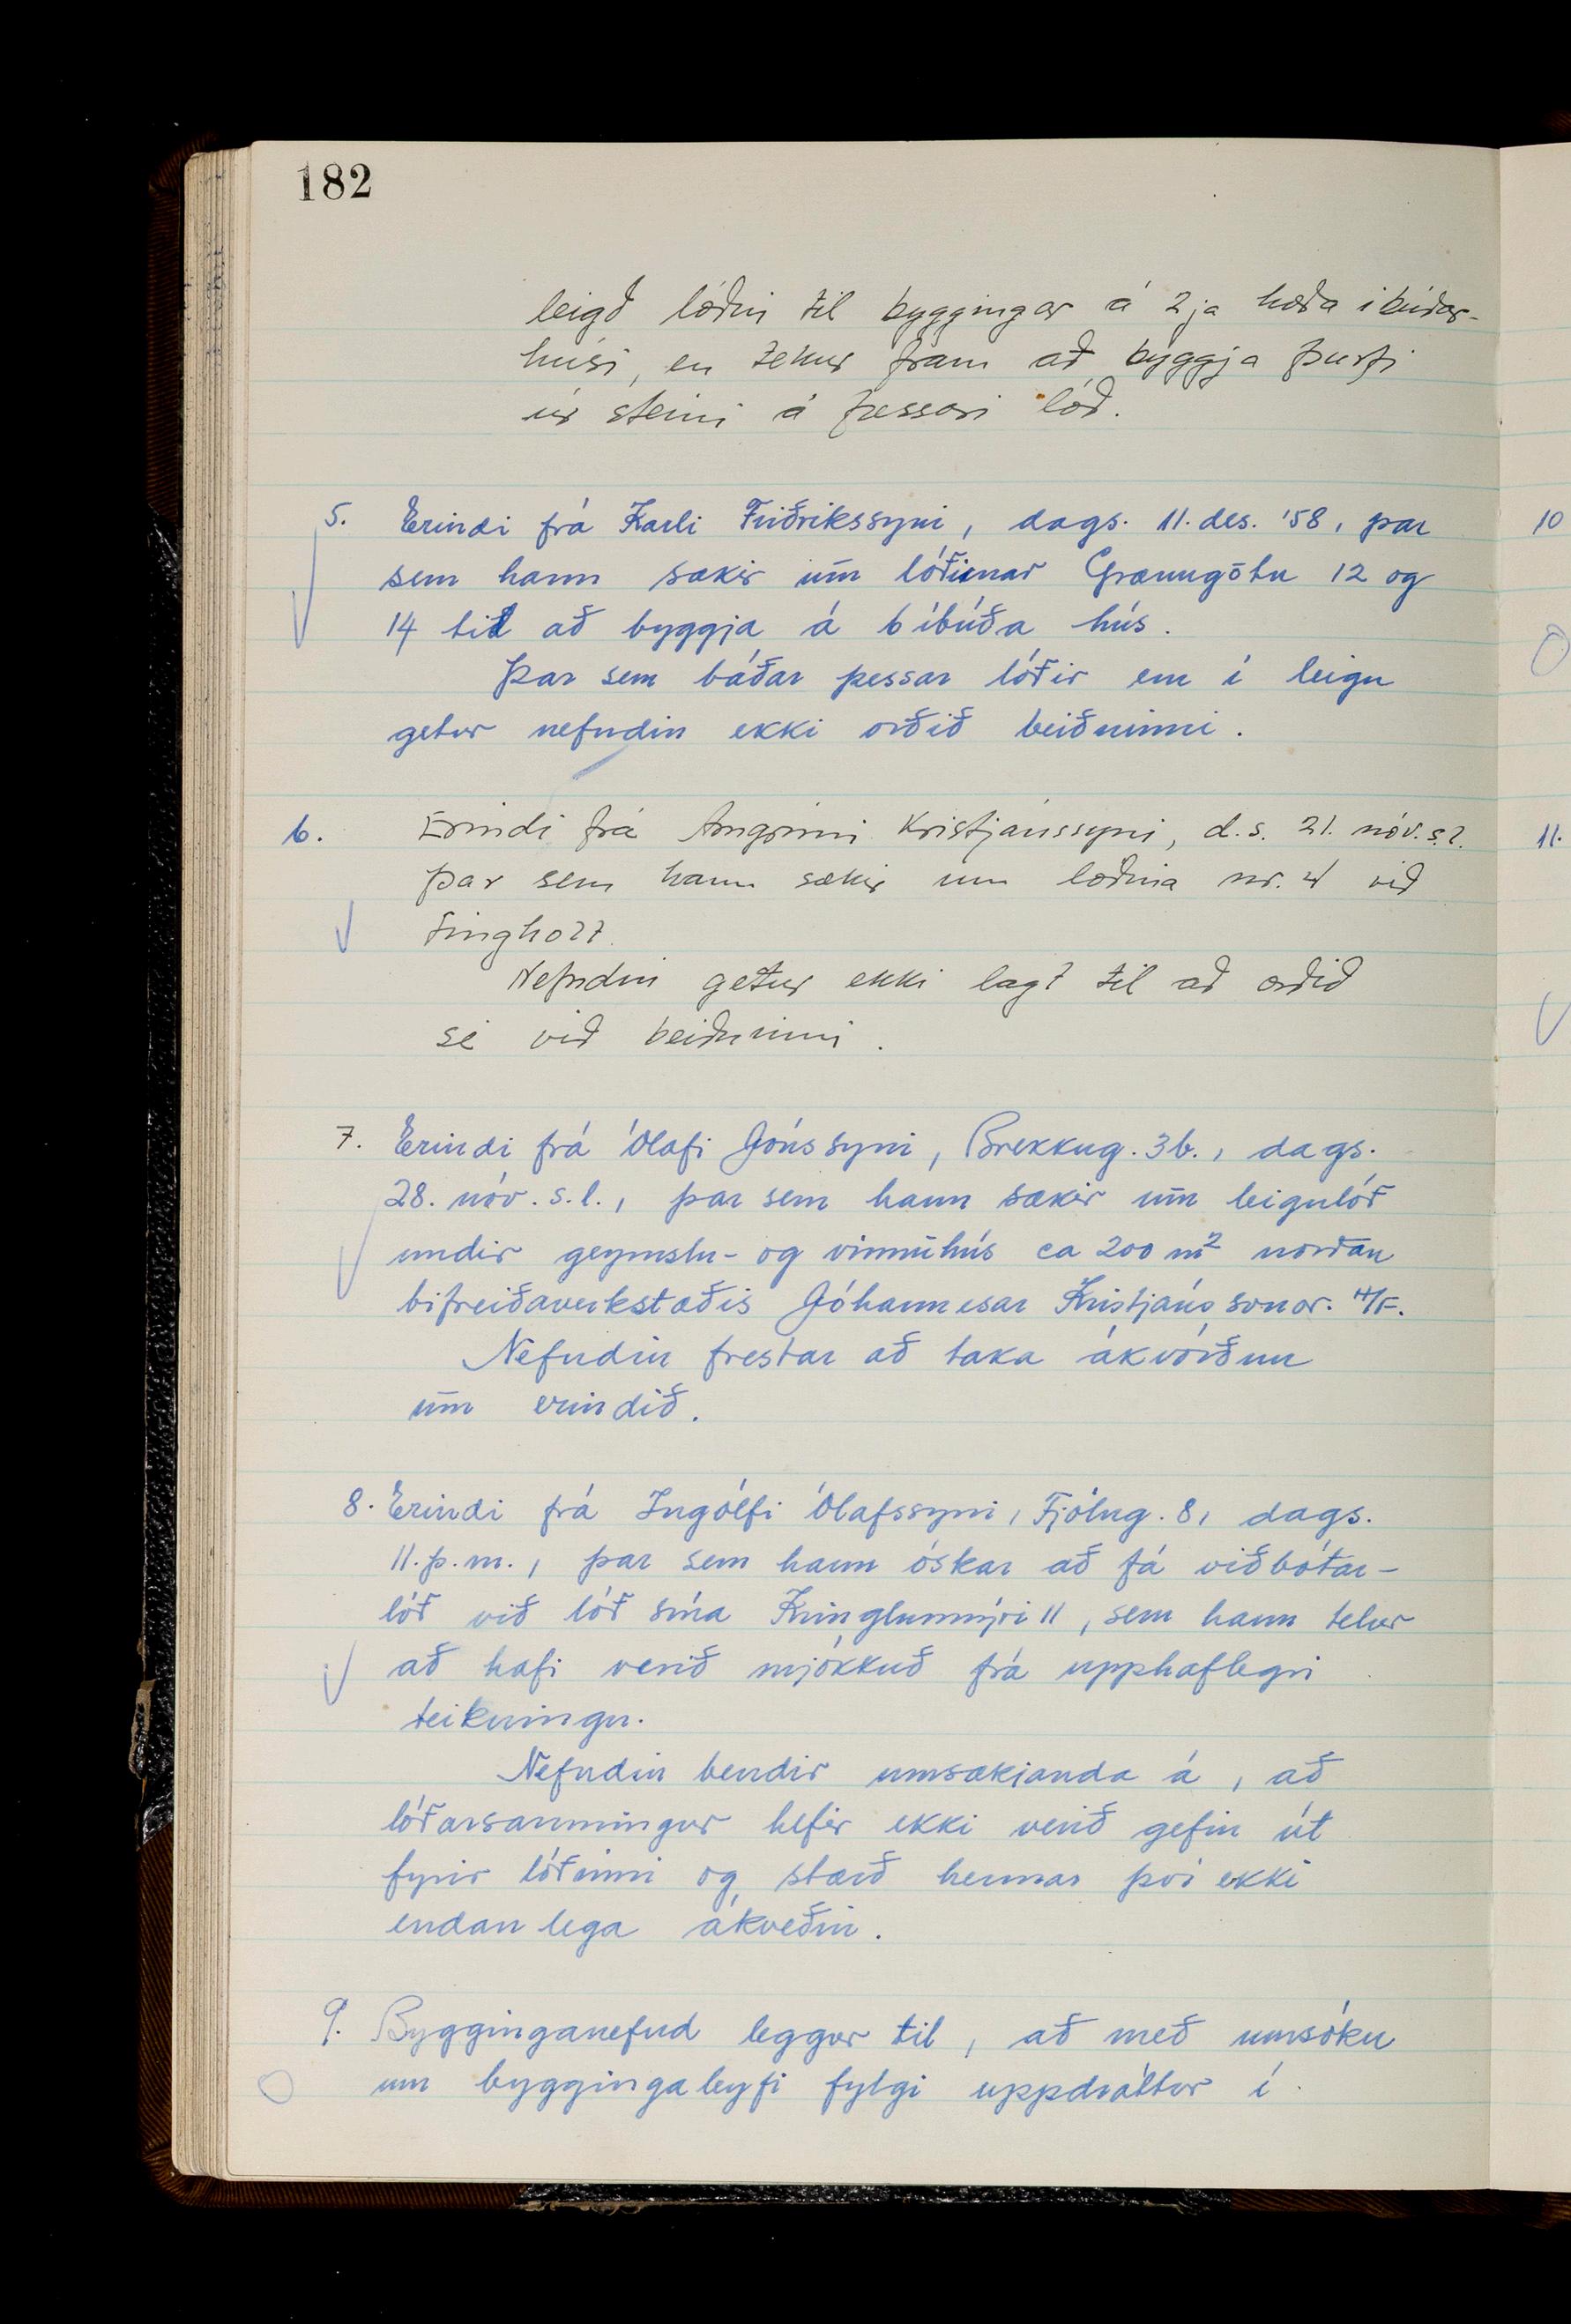 182
leigð lóðin til byggingar á 2ja hæða íbúðar-
húsi, en tekur fram að byggja þurfi
úr steini á þessari lóð.
5. Erindi frá Karli Friðrikssyni, dags. 11. des. '58, þar
sem hann sækir um lóðirnar Grænugötu 12 og
14 til að byggja á 6 íbúða hús.
Þar sem báðar þessar lóðir eru í leigu
getur nefndin ekki orðið beiðninni.
6. Erindi frá Arngrími Kristjánssyni, d.s. 21. nóv. s.l.
þar sem hann sækir um lóðina nr. 4 við
Lingholt.
Nefndin getur ekki lagt til að orðið
sé við beiðninni.
7. Erindi frá Ólafi Jónssyni, Brekkug. 3b., dags.
28. nóv. s.l., þar sem hann sækir um leigulóð
undir geymslu- og vinnuhús ca 200 m² norðan
bifreiðaverkstæðis Jóhannesar Kristjánssonar H/F.
Nefndin frestar að taka ákvörðun
um erindið.
8. Erindi frá Ingólfi Ólafssyni, Fjólug. 8, dags.
11. þ.m., þar sem hann óskar að fá viðbótar-
lóð við lóð sína Kringlumýri 11, sem hann telur
að hafi verið mjókkuð frá upphaflegri
teikningu.
Nefndin bendir umsækjanda á, að
lóðarsamningur hefir ekki verið gefin út
fyrir lóðinni og stærð hennar því ekki
endanlega ákveðin.
9. Bygginganefnd leggur til, að með umsókn
um byggingaleyfi fylgi uppdráttur í
10
11.